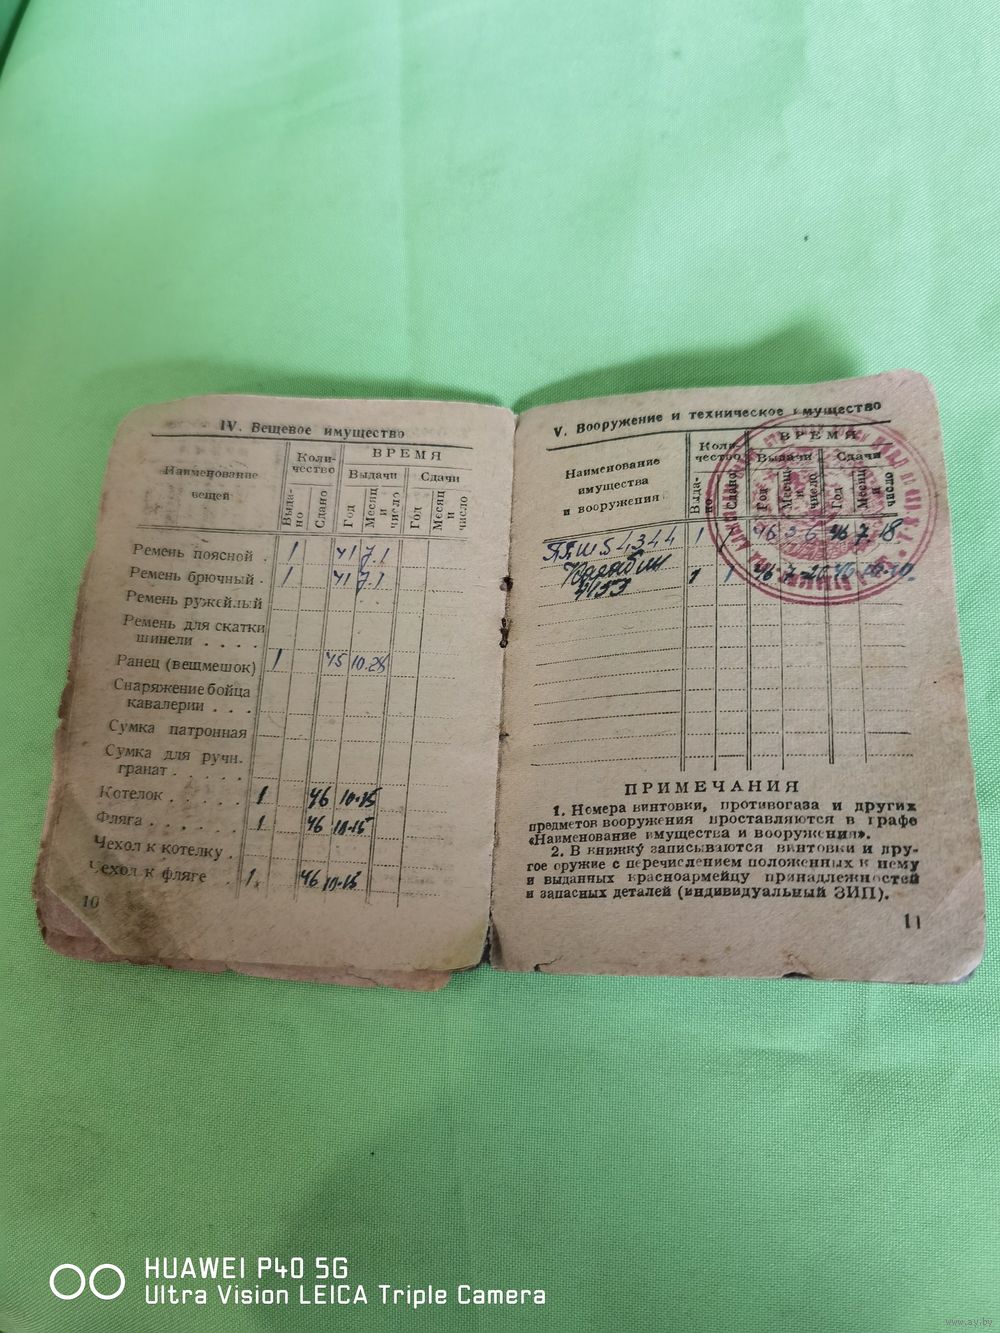 IV. Вещевое имущество
Наименование
вещей
Коли-
чество
ВРЕМЯ
Выдачи
Сдачи
Выда-
но
Сдано
Год
Месяц
и
число
Год
Месяц
и
число
Ремень поясной . 1 41 7.1
Ремень брючный . 1 41 7.1
Ремень ружейный
Ремень для скатки
шинели . . . .
Ранец (вещмешок) 1 45 10.28
Снаряжение бойца
кавалерии . . .
Сумка патронная
Сумка для ручн.
гранат . . . . .
Котелок . . . . . 1 46 10-15
Фляга . . . . . . 1 46 10-15
Чехол к котелку .
Чехол к фляге . 1 46 10-15
10
V. Вооружение и техническое имущество
Наименование
имущества
и вооружения
Коли-
чество
ВРЕМЯ
Выдачи
Сдачи
Выда-
но
Сдано
Год
Месяц
и
число
Год
Месяц
и
число
54344 1 46 46 7 18
Карабин 1 1 46 7
ПРИМЕЧАНИЯ
1. Номера винтовки, противогаза и других
предметов вооружения проставляются в графе
«Наименование имущества и вооружения».
2. В книжку записываются винтовки и дру-
гое оружие с перечислением положенных к нему
и выданных красноармейцу принадлежностей
и запасных деталей (индивидуальный ЗИП).
11
HUAWEI P40 5G
Ultra Vision LEICA Triple Camera
www.ay.by